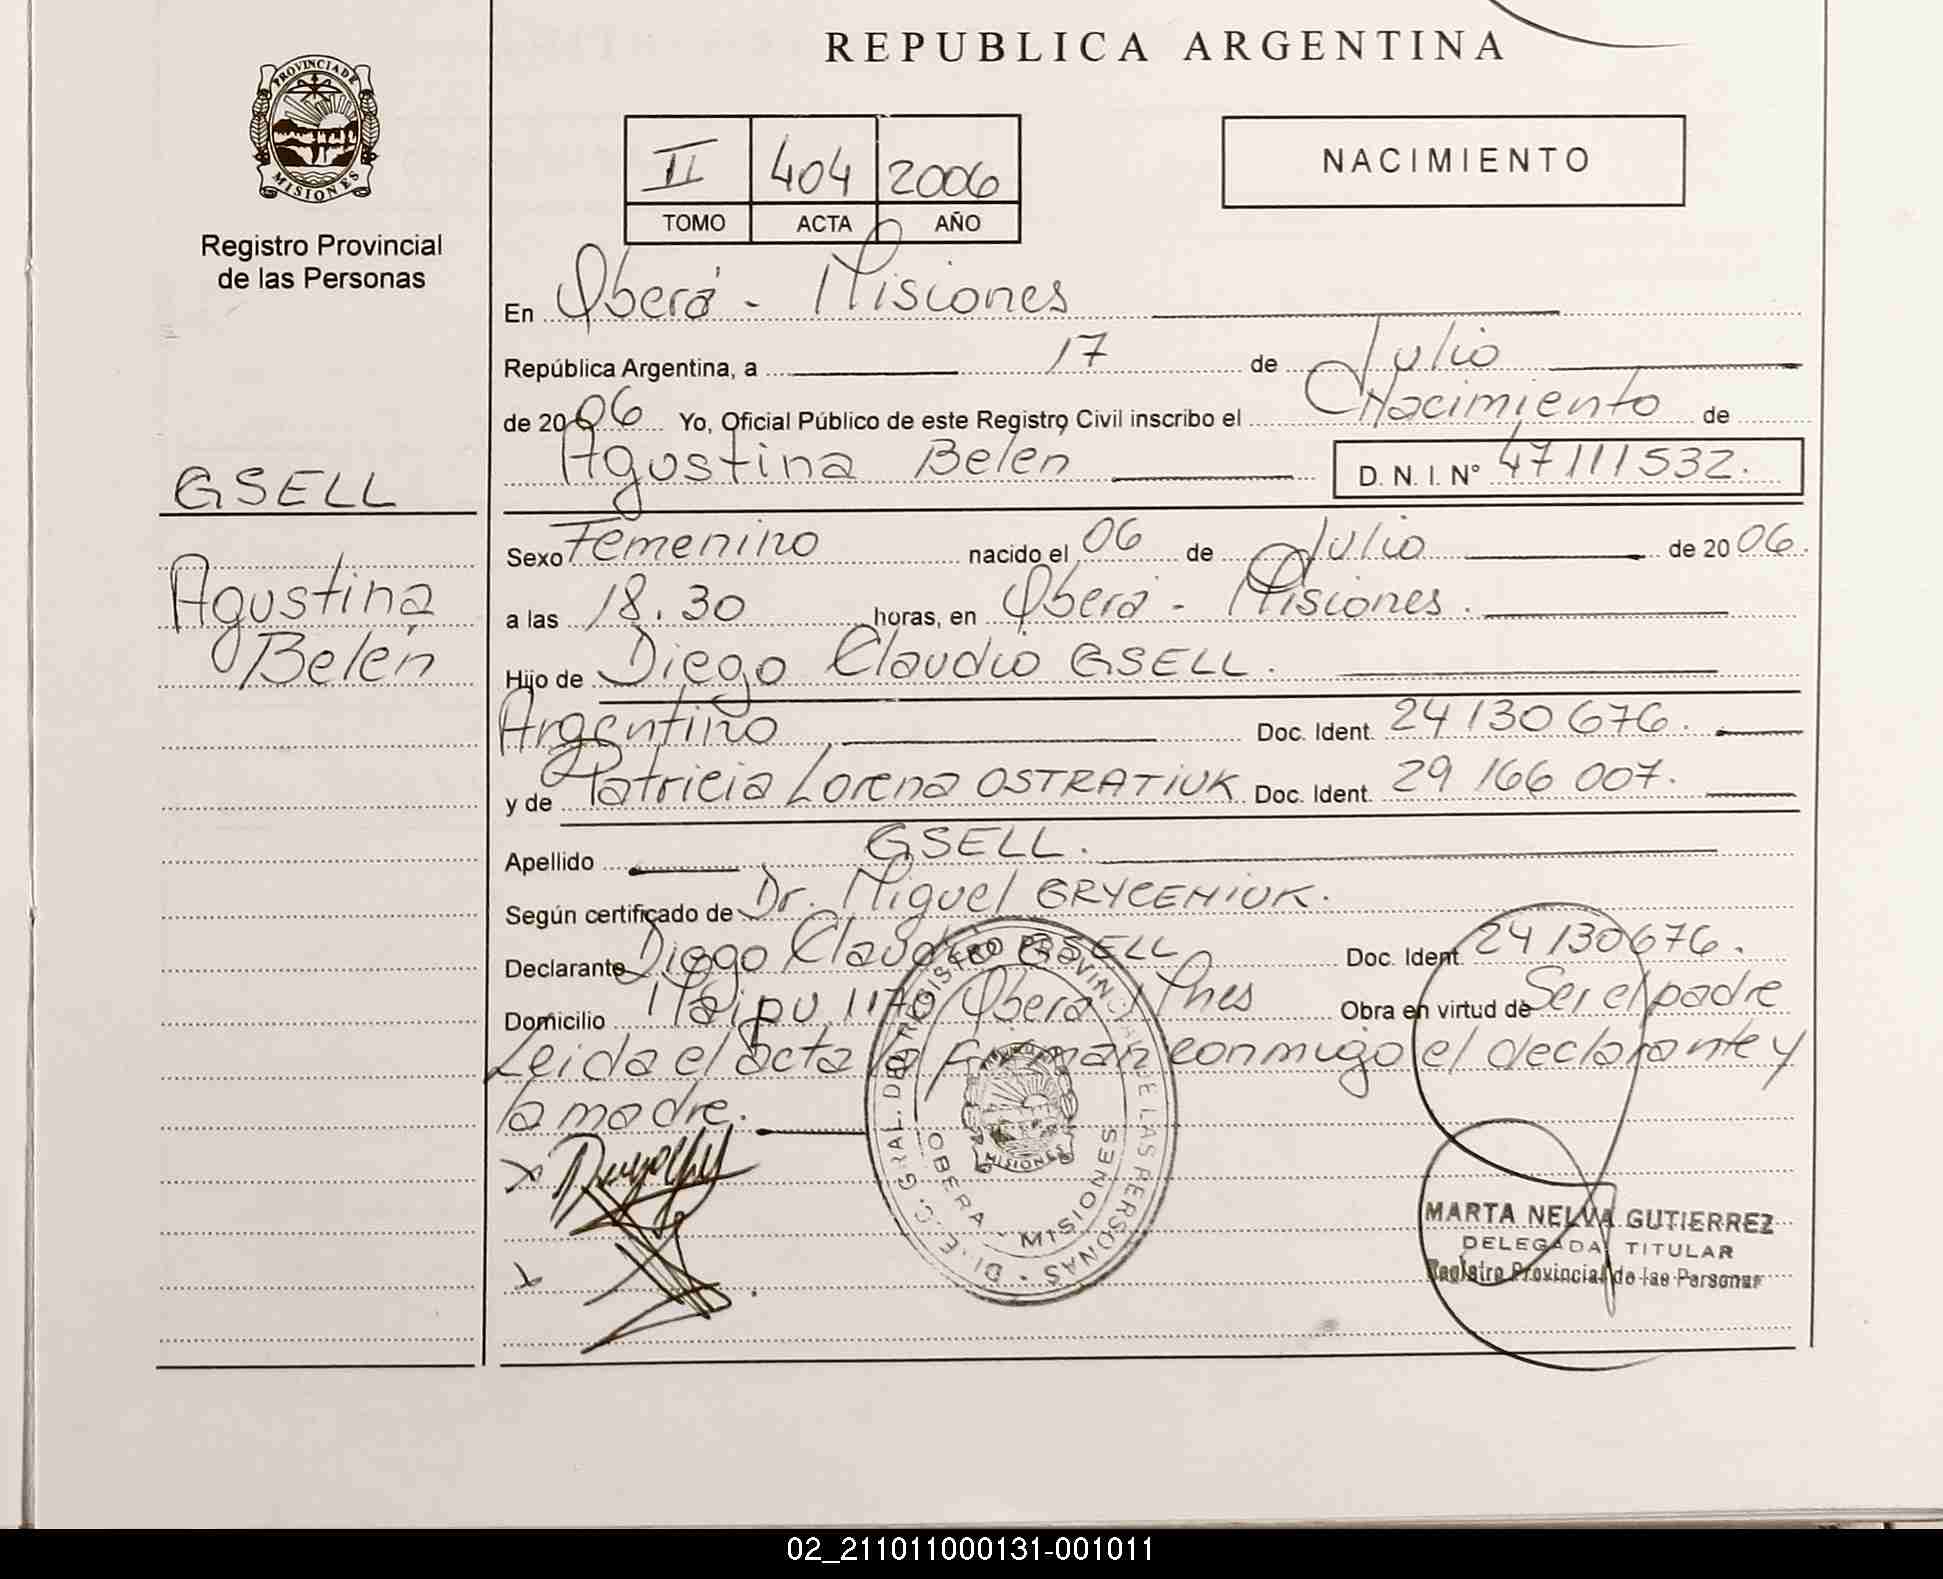 REPUBLICA ARGENTINA
PROVINCIA DE
MISIONES
Registro Provincial
de las Personas
II 404 2006
TOMO ACTA AÑO
NACIMIENTO
En Oberá - Misiones
República Argentina, a 17 de Julio
de 2006 Yo, Oficial Público de este Registro Civil inscribo el Nacimiento de
Agustina Belén D. N. I. N° 47111532.
GSELL
Agustina
Belén
Sexo Femenino nacido el 06 de Julio de 2006.
a las 18.30 horas, en Oberá - Misiones.
Hijo de Diego Claudio GSELL.
Argentino Doc. Ident. 24130676.
y de Patricia Lorena OSTRATIUK Doc. Ident. 29 166 007.
Apellido GSELL.
Según certificado de Dr. Miguel GRYCENIUK.
Declarante Diego Claudio GSELL Doc. Ident. 24130676.
Domicilio Maipu 1170 Oberá Mnes Obra en virtud de Ser el padre
Leida el acta la firman conmigo el declarante y
la madre.
DI.E.C. GRAL. DEL REGISTRO PROVINCIAL DE LAS PERSONAS
MISIONES
OBERA - MISIONES
MARTA NELVA GUTIERREZ
DELEGADA TITULAR
Registro Provincial de las Personas
02_211011000131-001011